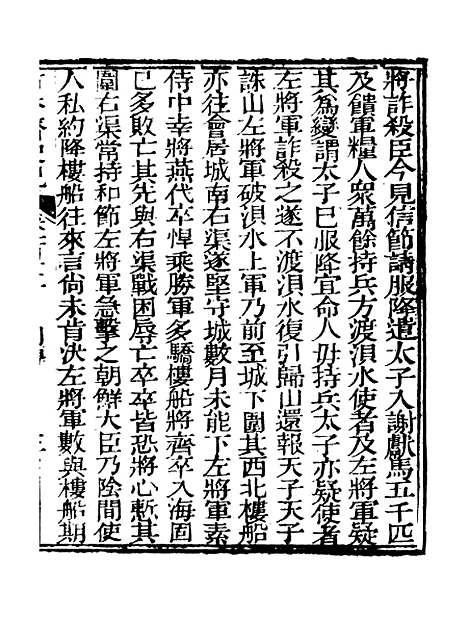 將詐殺臣今見信節請服降遣太子入謝獻馬五千匹
及饋軍糧人衆萬餘持兵方渡浿水使者及左將軍疑
其爲變謂太子已服降宜命人毋持兵太子亦疑使者
左將軍詐殺之遂不渡浿水復引歸山還報天子天子
誅山左將軍破浿水上軍乃前至城下圍其西北樓船
亦往會居城南右渠遂堅守城數月未能下左將軍素
侍中幸將燕代卒悍乘勝軍多驕樓船將齊卒入海固
已多敗亡其先與右渠戰困辱亡卒卒皆恐將心慙其
圍右渠常持和節左將軍急擊之朝鮮大臣乃陰間使
人私約降樓船往來言尙未肯決左將軍數與樓船期